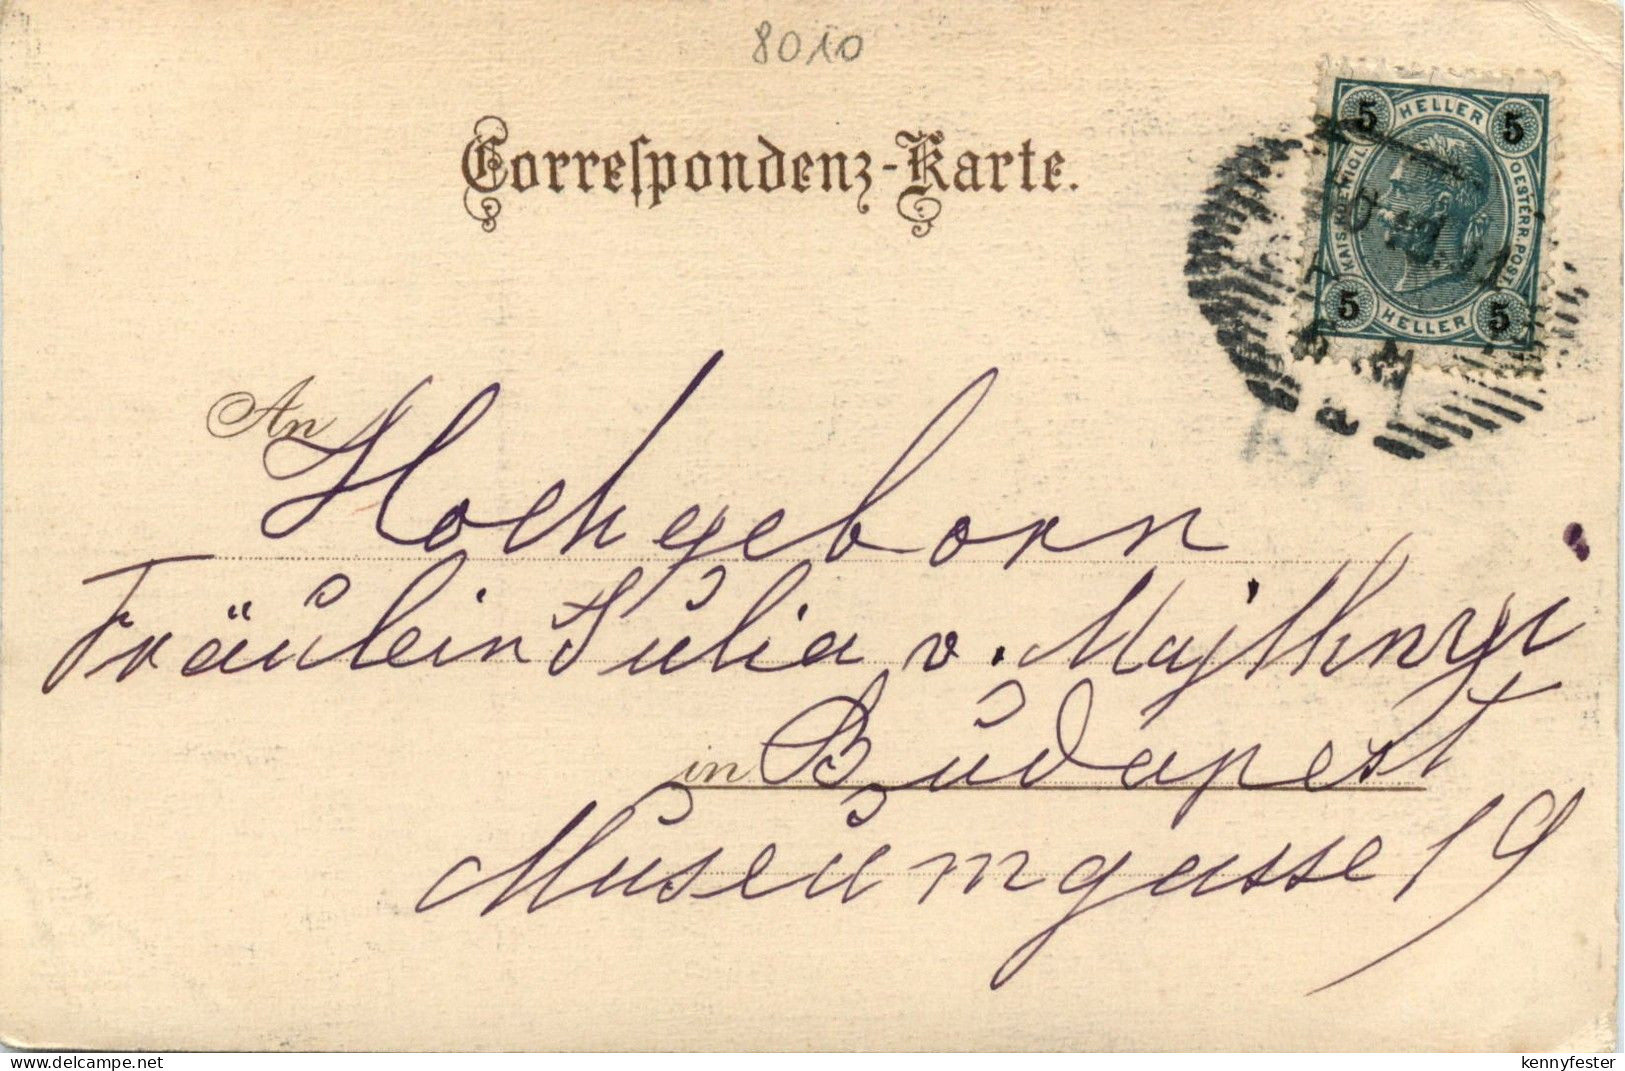 8010
Correſpondenz-Karte.
5 HELLER 5
KAIS. KOENIGL. OESTERR. POST
5 HELLER 5
a
An Hochgeborn
Fräulein Julia v. Majthnyi
in Budapest
Museumgasse 19
delcampe.net
kennyfester